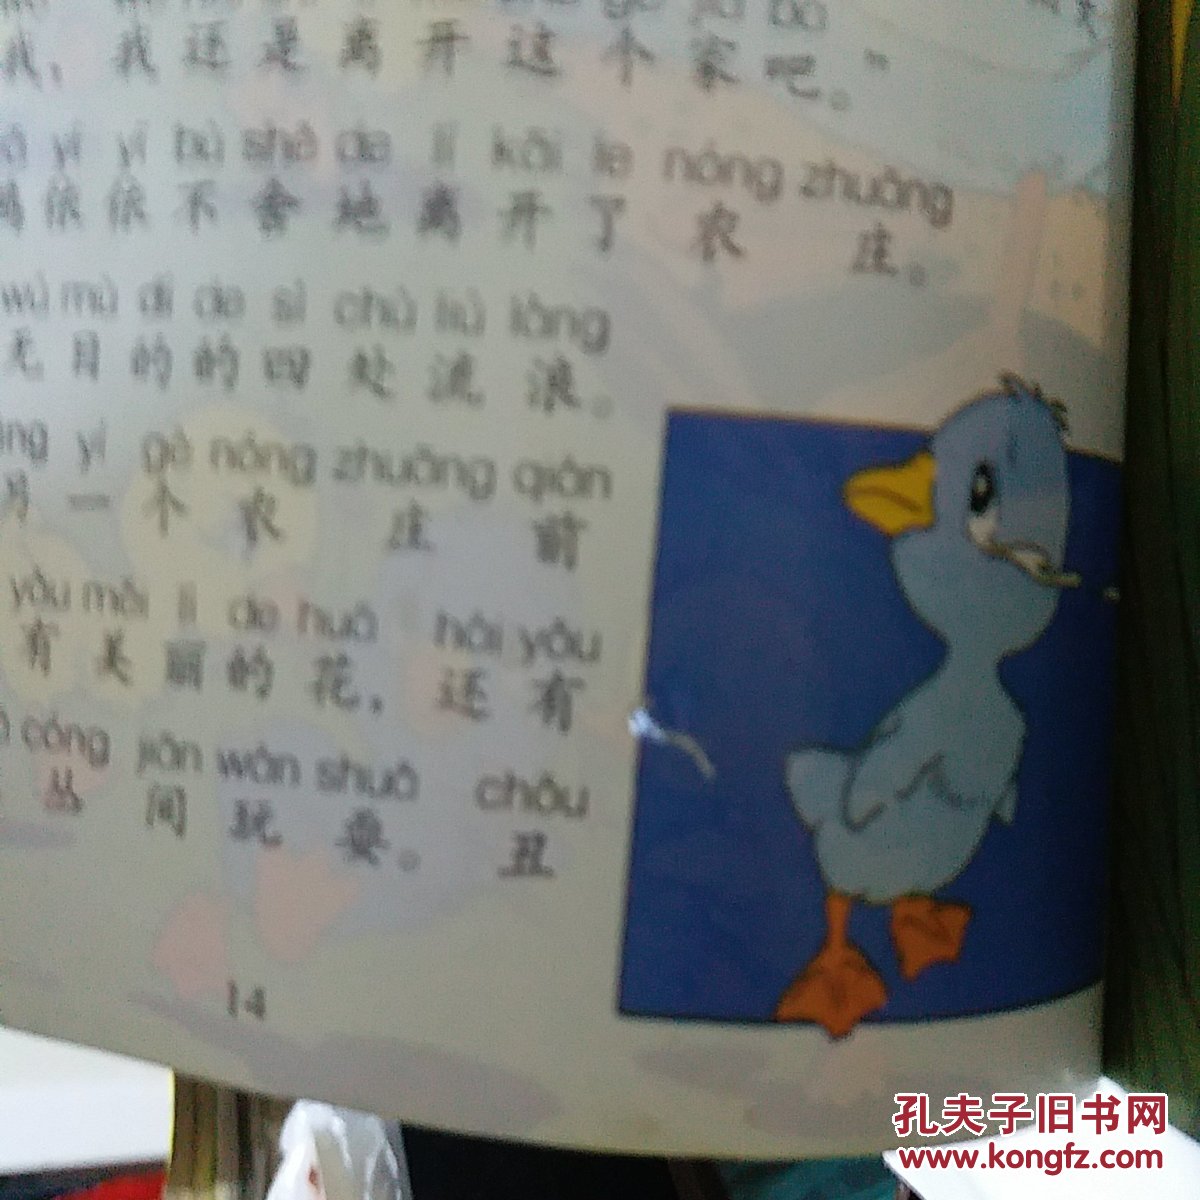 gè jiā bā
我，我还是离开这个家吧。”
yī yī bù shě de lí kāi le nóng zhuāng
依依不舍地离开了农庄。
wú mù dì de sì chù liú làng
无目的的四处流浪。
yí gè nóng zhuāng qián
另一个农庄前
yǒu měi lì de huā hái yǒu
有美丽的花，还有
cóng jiān wán shuǎ chǒu
丛间玩耍。丑
14
孔夫子旧书网
www.kongfz.com